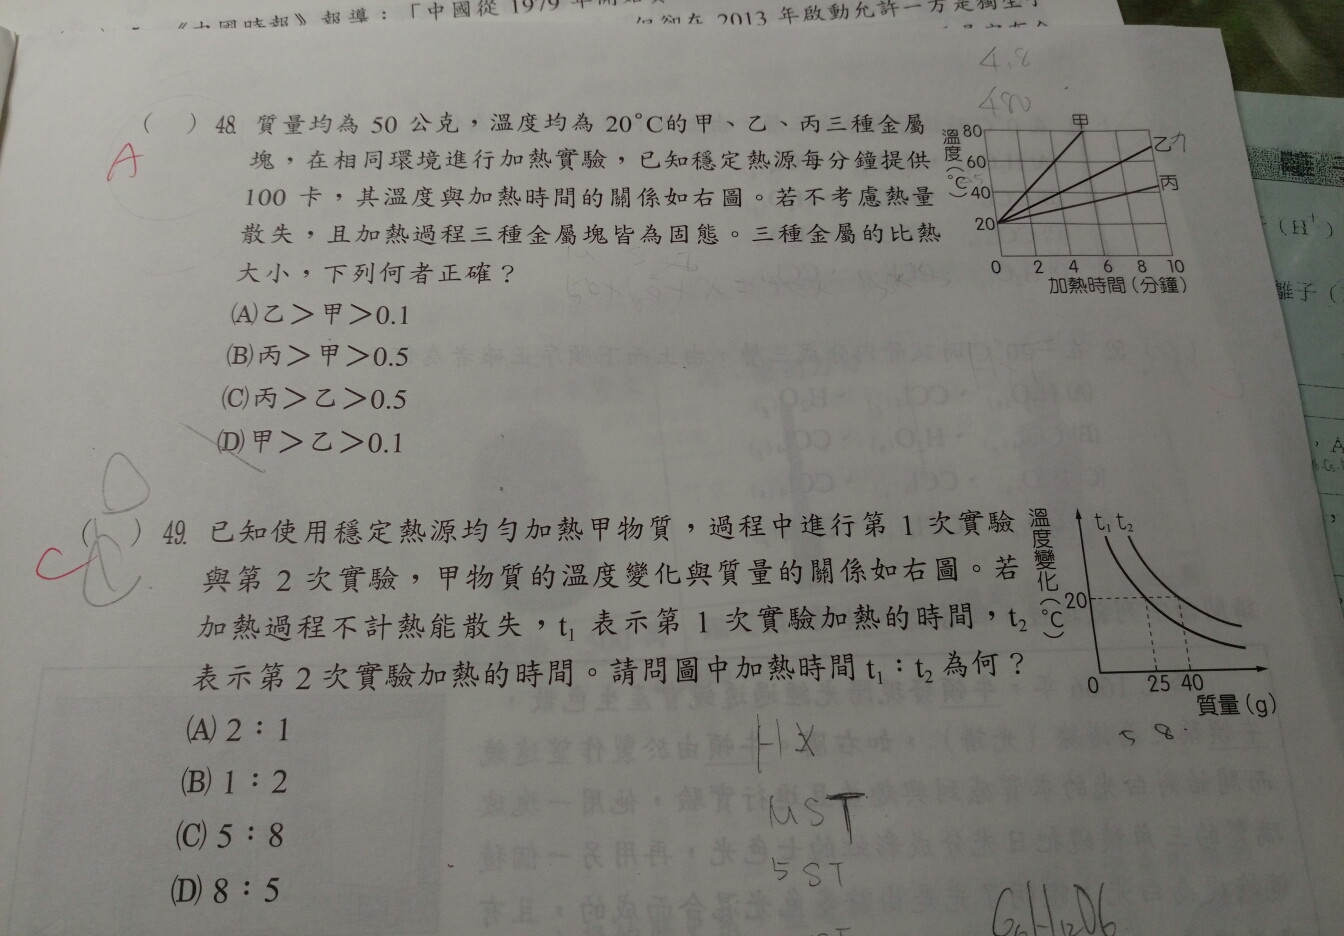 《中國時報》報導：「中國從 1979 年開始
在 2013 年啟動允許一方是獨生子
4.8
480
A
( ) 48. 質量均為 50 公克，溫度均為 20°C的甲、乙、丙三種金屬
塊，在相同環境進行加熱實驗，已知穩定熱源每分鐘提供
100 卡，其溫度與加熱時間的關係如右圖。若不考慮熱量
散失，且加熱過程三種金屬塊皆為固態。三種金屬的比熱
大小，下列何者正確？
(A)乙＞甲＞0.1
(B)丙＞甲＞0.5
(C)丙＞乙＞0.5
(D)甲＞乙＞0.1
溫度(°C)
80
60
40
20
甲
乙
丙
0 2 4 6 8 10
加熱時間(分鐘)
D
C
( ) 49. 已知使用穩定熱源均勻加熱甲物質，過程中進行第 1 次實驗
與第 2 次實驗，甲物質的溫度變化與質量的關係如右圖。若
加熱過程不計熱能散失，t₁ 表示第 1 次實驗加熱的時間，t₂
表示第 2 次實驗加熱的時間。請問圖中加熱時間 t₁：t₂ 為何？
(A) 2：1
(B) 1：2
(C) 5：8
(D) 8：5
溫度變化(°C)
t₁ t₂
20
0 25 40
質量(g)
5 8
H X
MST
5ST
C6H12O6
(H⁺)
離子(